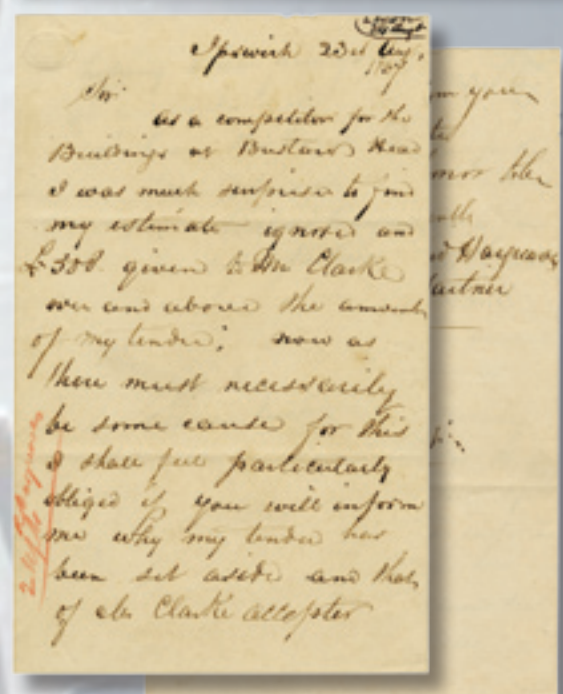 Ipswich 23d Aug.
Sir
as a competitor for the
Buildings at Bustard Head
I was much surprise to find
my estimate ignored and
£300 given to Mr Clarke
over and above the amount
of my tender; now as
there must necessarily
be some cause for this
I shall feel particularly
obliged if you will inform
me why my tender has
been set aside and that
of Mr Clarke accepted
you
Hargrave
Partner